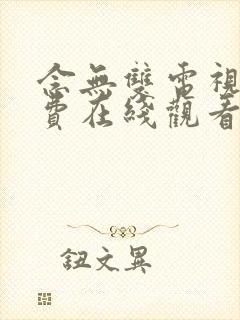 念無雙電視
費在綫觀看
鈕文異